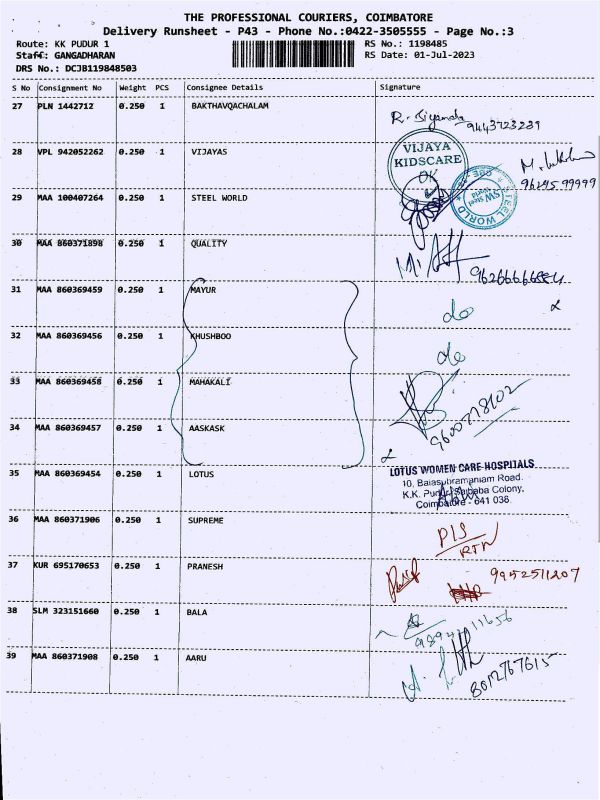 THE PROFESSIONAL COURIERS, COIMBATORE
Delivery Runsheet - P43 - Phone No.:0422-3505555 - Page No.:3
Route: KK PUDUR 1 RS No.: 1198485
Staff: GANGADHARAN RS Date: 01-Jul-2023
DRS No.: DCJB119848503
S No Consignment No Weight PCS Consignee Details Signature
27 PLN 1442712 0.250 1 BAKTHAVQACHALAM
9443723239
28 VPL 942052262 0.250 1 VIJAYAS
VIJAYA
KIDSCARE
OK
29 MAA 100407264 0.250 1 STEEL WORLD
STEEL WORLD
SW
30 MAA 860371898 0.250 1 QUALITY
31 MAA 860369459 0.250 1 MAYUR
do
32 MAA 860369456 0.250 1 KHUSHBOO
do
33 MAA 860369458 0.250 1 MAHAKALI
9600778102
34 MAA 860369457 0.250 1 AASKASK
35 MAA 860369454 0.250 1 LOTUS
LOTUS WOMEN CARE HOSPITALS
10, Balasubramaniam Road.
K.K. Pudur, Saibaba Colony,
Coimbatore - 641 038.
36 MAA 860371906 0.250 1 SUPREME
DIS
RTN
37 KUR 695170653 0.250 1 PRANESH
9952511207
38 SLM 323151660 0.250 1 BALA
39 MAA 860371908 0.250 1 AARU
8012767615